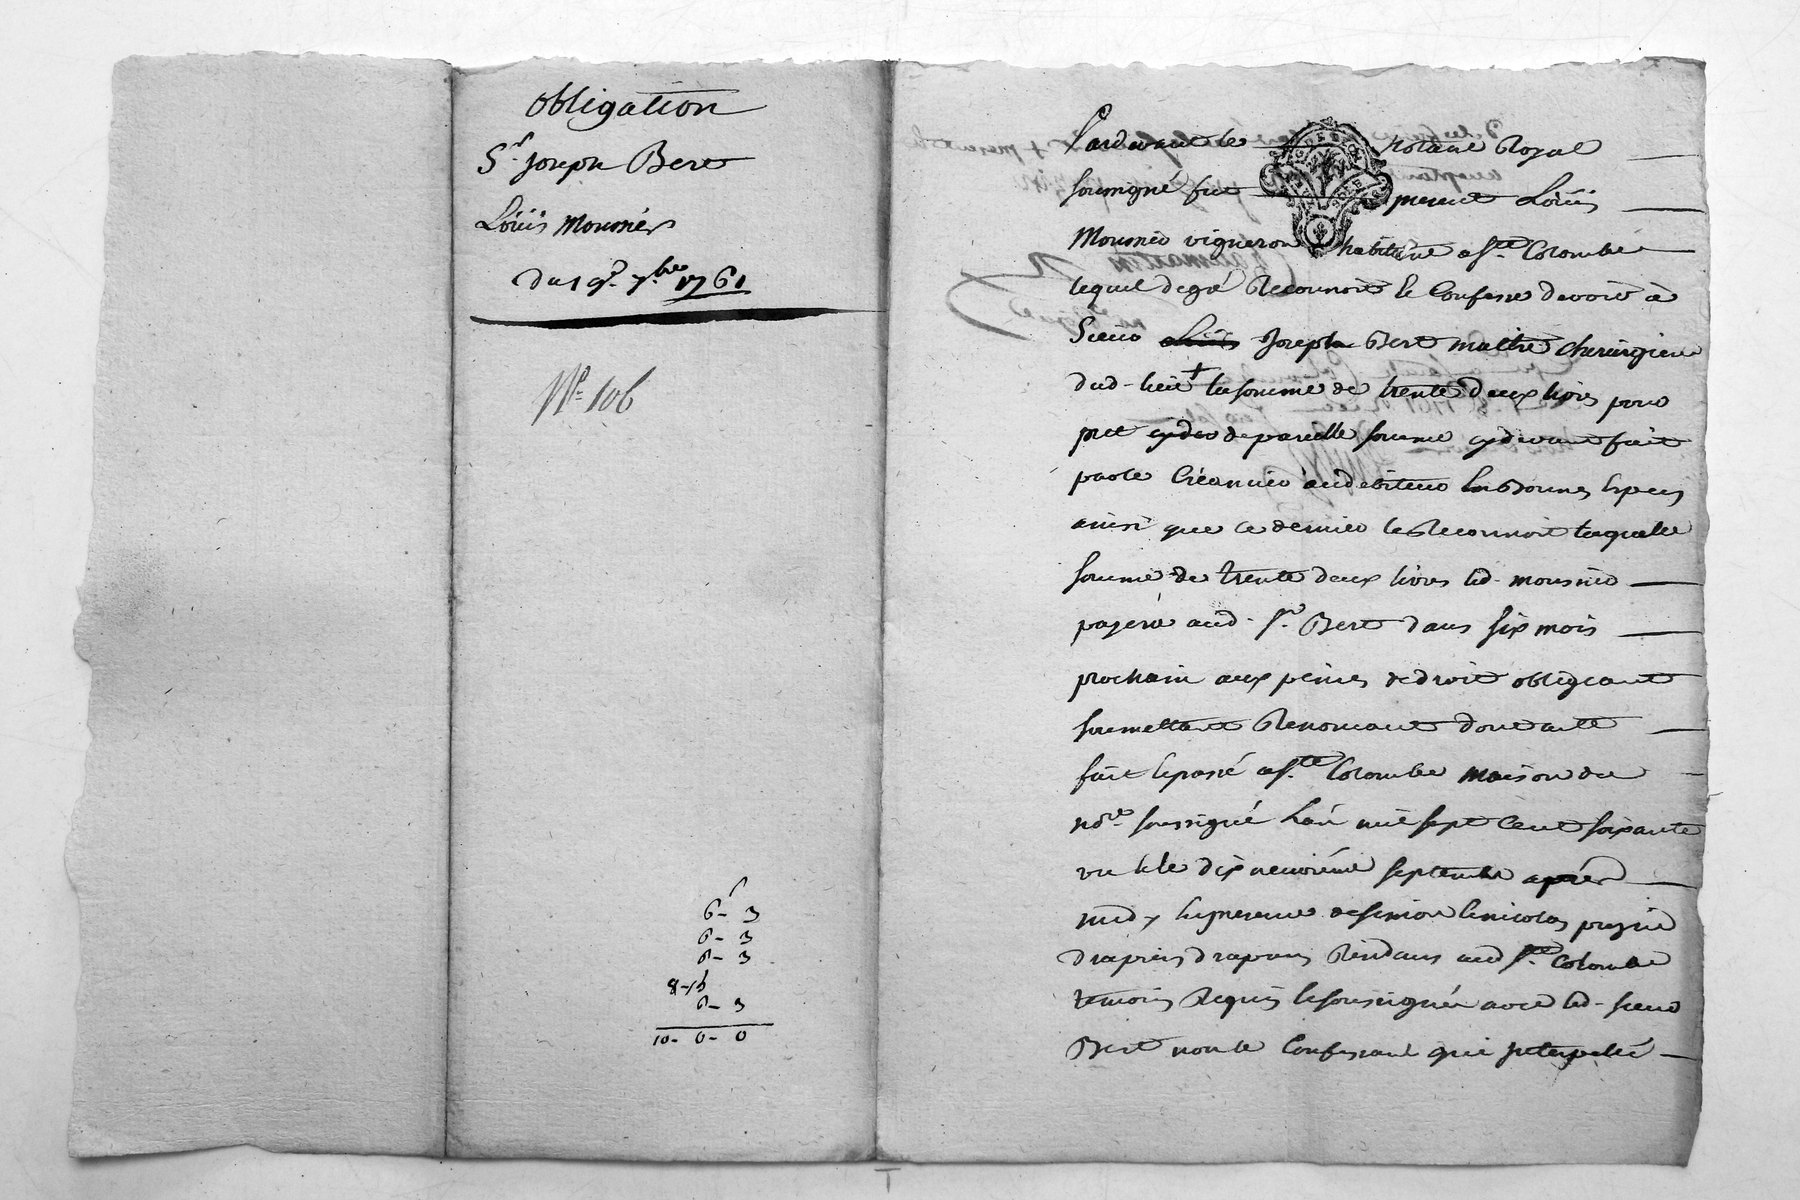 obligation
Sr. Joseph Bert
Loüis Mousnier
Du 19e. 7bre 1761
No. 106
6
6- 3
6- 3
6- 3
8-15
6- 3
10- 0- 0
Pardevant le notaire Royal
soussigné fut present Loüis
Mousnier vigneron habitant a Ste. Colombe
lequel de gré Reconnoit & Confesse devoir à
Sieur Joseph Bert maitre chirurgien
dud- lieu + la somme de trente deux livres pour
pret de pareille somme cydevant fait
par le Créancier au debiteur en bonnes especes
ainsi que ce dernier le Reconnoit laquelle
somme de trente deux livres led- mousnier
payera aud- Sr. Bert dans six mois
prochain aux peines de droit obligeant
soumettant Renonceant dont acte
fait & passé a Ste. Colombe maison du
nore. soussigné L'an mil sept Cent soixante
un & le dix neuvieme septembre après
midy en presence de &
drapiers drapans Residans aud Ste. Colombe
temoins Requis & soussignés avec led- sieur
Bert non le Confessant qui interpellé